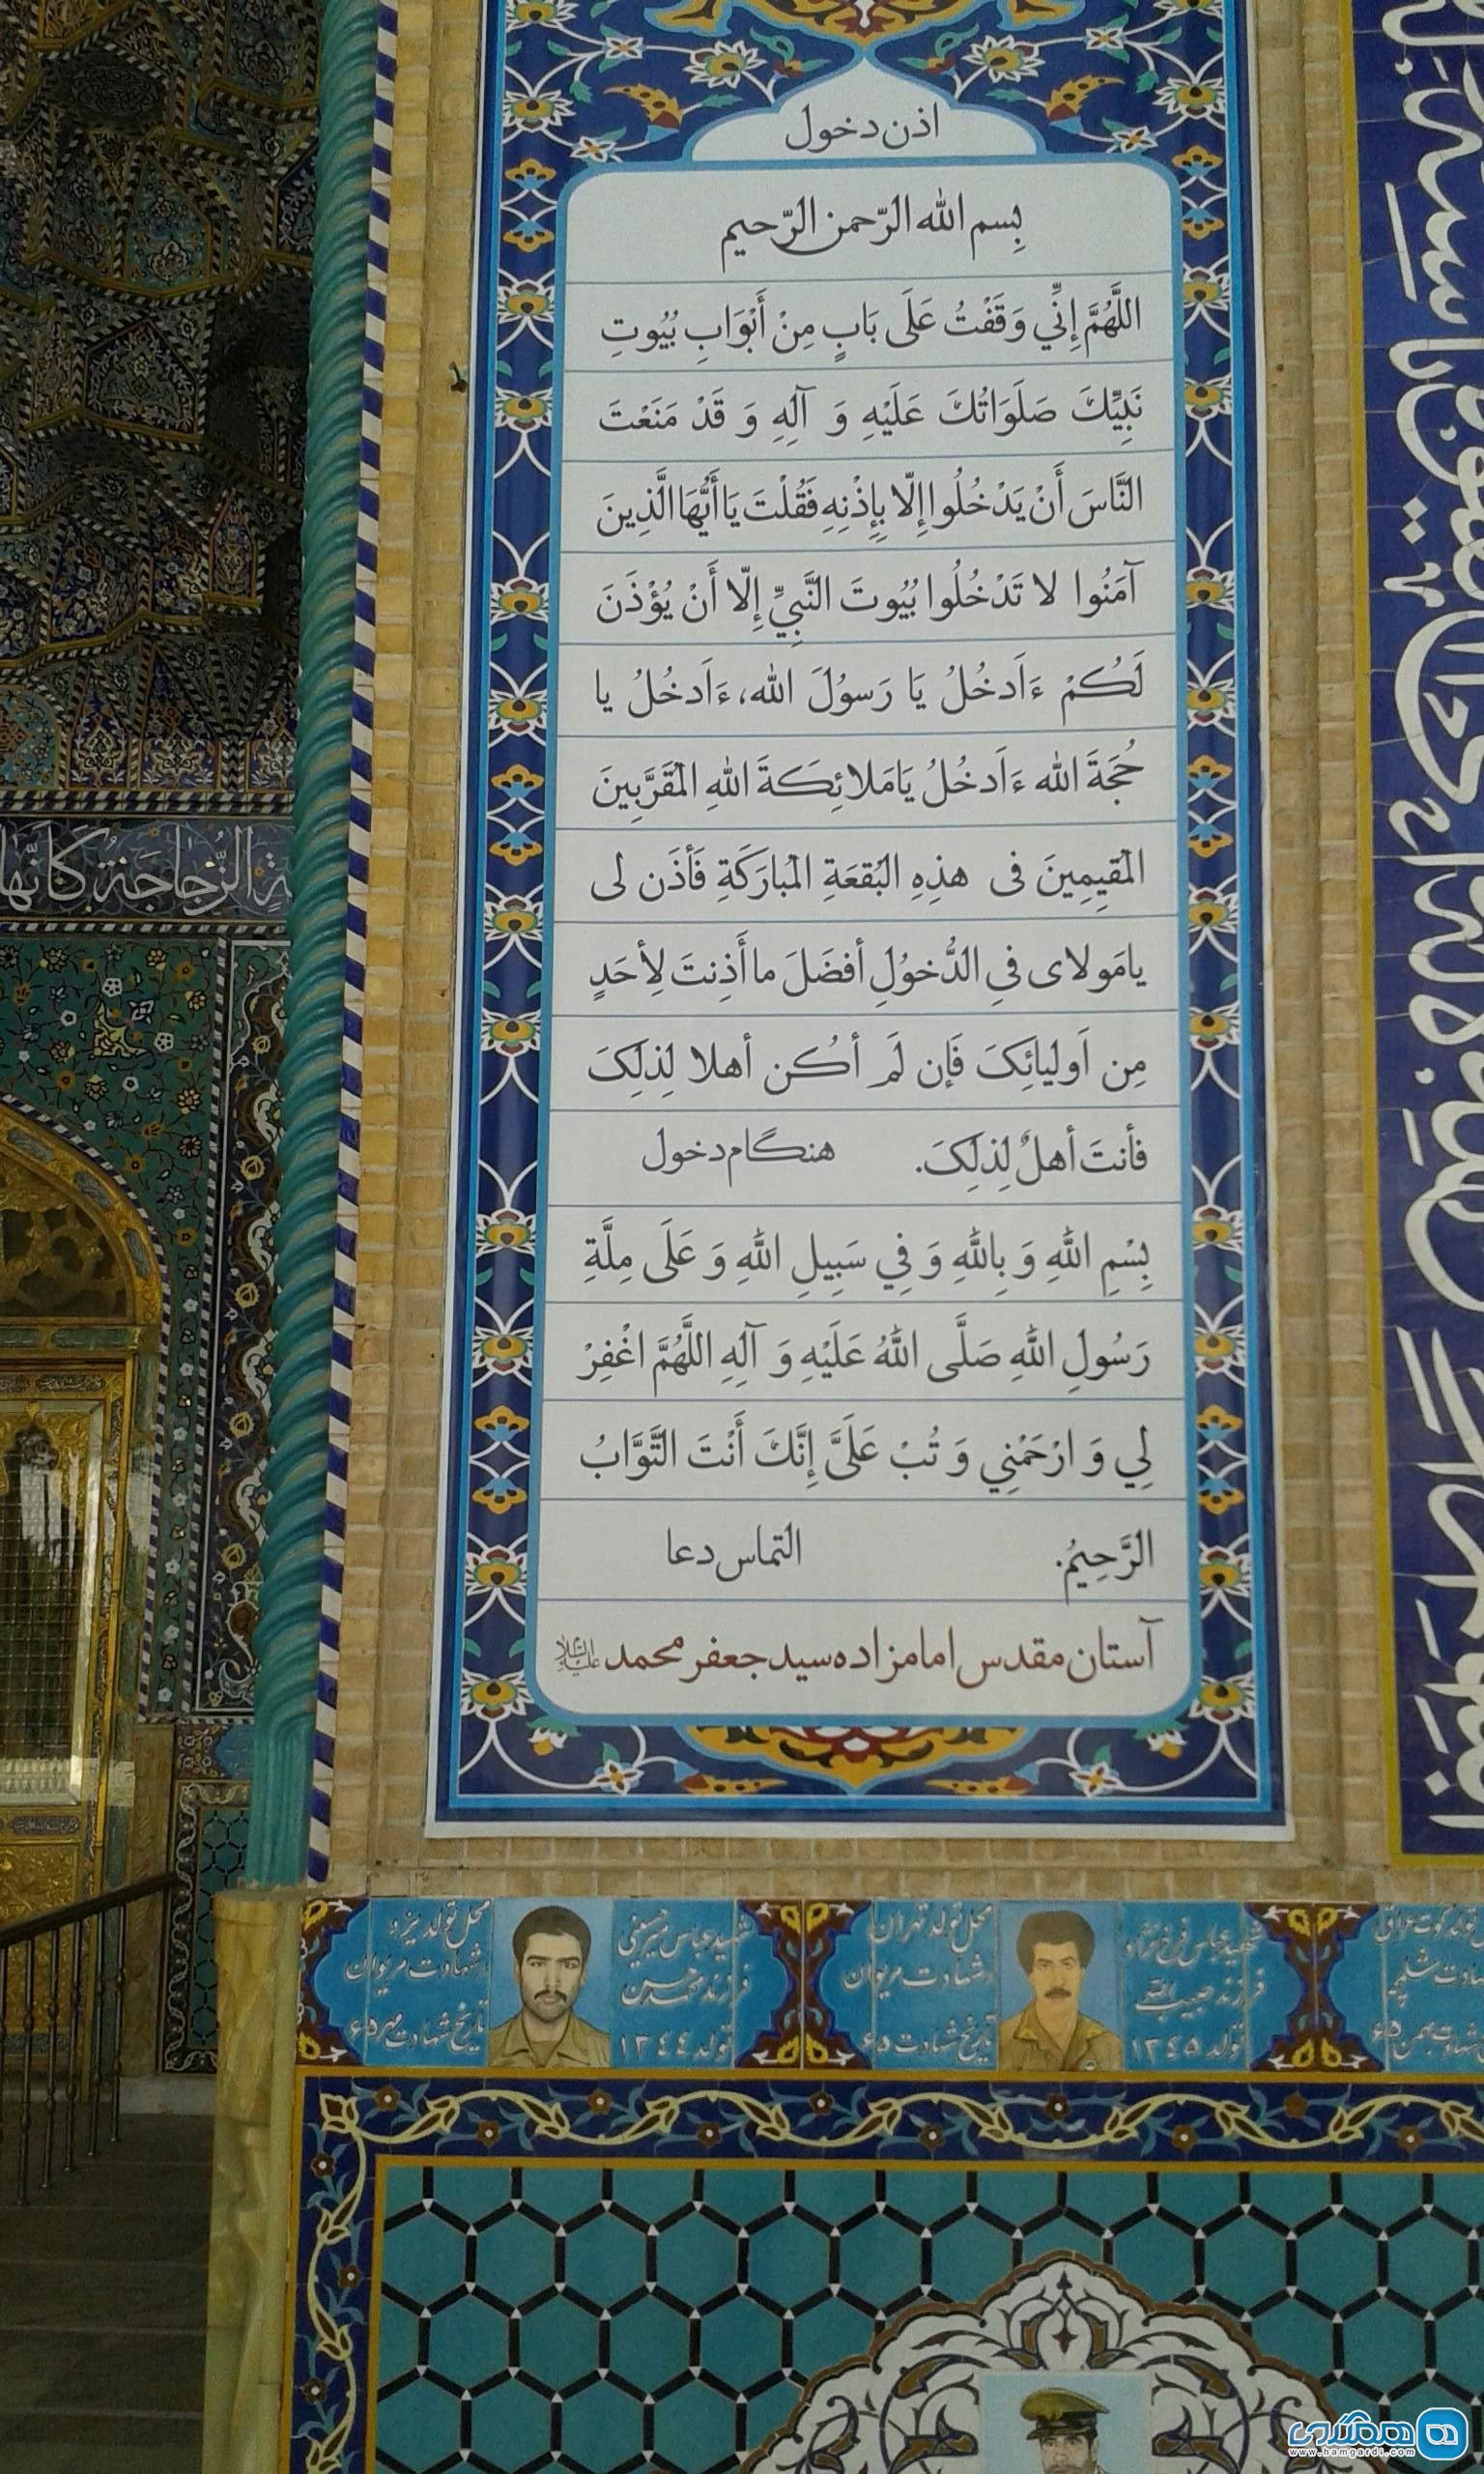 اذن دخول
بِسم الله الرّحمن الرّحیم
اللَّهُمَّ إِنِّي وَقَفْتُ عَلَى بَابٍ مِنْ أَبْوَابِ بُيُوتِ
نَبِيِّكَ صَلَوَاتُكَ عَلَيْهِ وَ آلِهِ وَ قَدْ مَنَعْتَ
النَّاسَ أَنْ يَدْخُلُوا إِلّا بِإِذْنِهِ فَقُلْتَ يَا أَيُّهَا الَّذِينَ
آمَنُوا لا تَدْخُلُوا بُيُوتَ النَّبِيِّ إِلّا أَنْ يُؤْذَنَ
لَكُمْ ءَاَدخُلُ يَا رَسوُلَ الله، ءَاَدخُلُ یا
حُجَةَ الله ءَاَدخُلُ يَامَلائِكَةَ اللهِ الْمُقَرَّبِينَ
الْمُقيِمِينَ فی هذِهِ الْبُقعَةِ الْمُبارَكَةِ فَأذَن لی
یامَولای فيِ الدُّخوُلِ أفضَلَ ما أَذِنتَ لِأحَدٍ
مِن اَولیائِکَ فَإن لَم أكُن أهلا لِذلِکَ
فأنتَ أهلٌ لِذلِکَ. هنگام دخول
بِسْمِ اللهِ وَ بِاللهِ وَ فِي سَبِيلِ اللهِ وَ عَلَى مِلَّةِ
رَسُولِ اللهِ صَلَّى اللهُ عَلَيْهِ وَ آلِهِ اللَّهُمَّ اغْفِرْ
لِي وَ ارْحَمْنِي وَ تُبْ عَلَيَّ إِنَّكَ أَنْتَ التَّوَّابُ
الرَّحِيمُ. التماس دعا
آستان مقدس امامزاده سید جعفر محمد علیه السلام
الزُّجاجَةُ كَأَنَّها
شهید عباس میرحسینی
فرزند محمدحسین
تولد ۱۳۴۴
محل تولد یزد
شهادت مریوان
تاریخ شهادت مهر ۶۵
شهید عباس فرخ نژاد
فرزند حبیب الله
تولد ۱۳۴۵
محل تولد تهران
شهادت مریوان
تاریخ شهادت ۶۵
همگردی
www.hamgardi.com